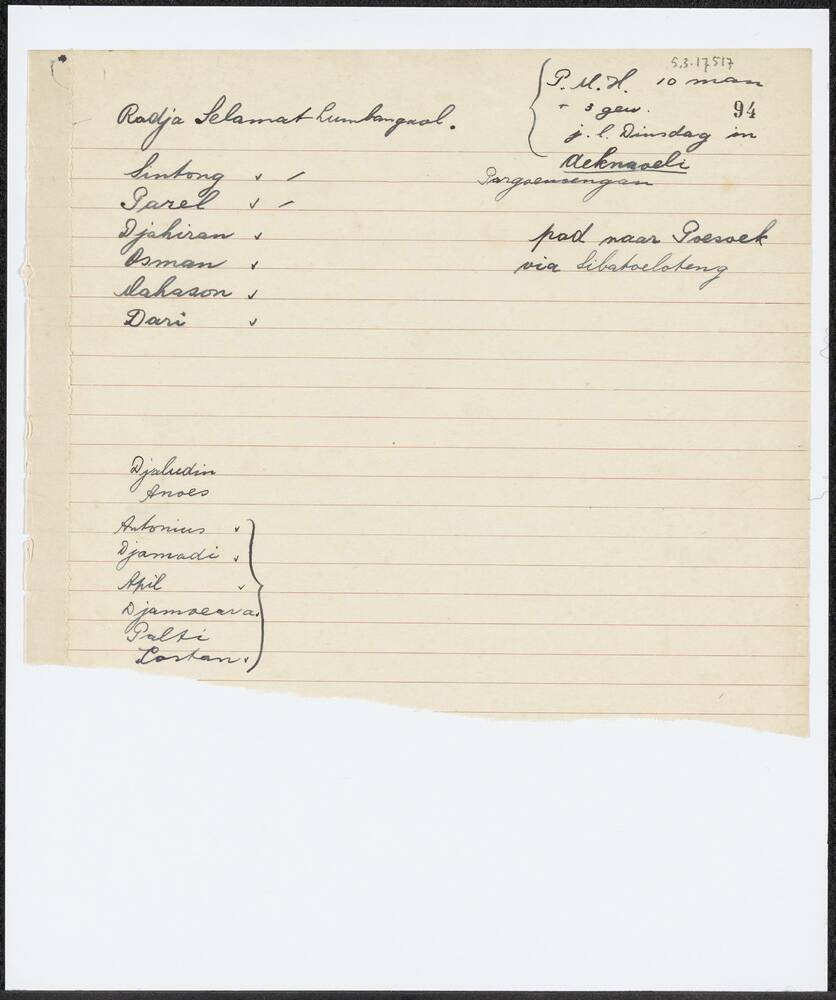 5.3.17517
P. M. H. 10 man
+ 3 gew.
94
j.l. Dinsdag in
Aeknaoeli
Radja Selamat Lumbangaol.
Sintong v /
Parel v /
Djahiran v
Osman v
Mahason v
Dari v
pad naar Poesoek
via Sibatoeloteng
Djaludin
Anoes
Antonius v
Djamadi v
Apil v
Djamoeara v
Palti
Lostan v